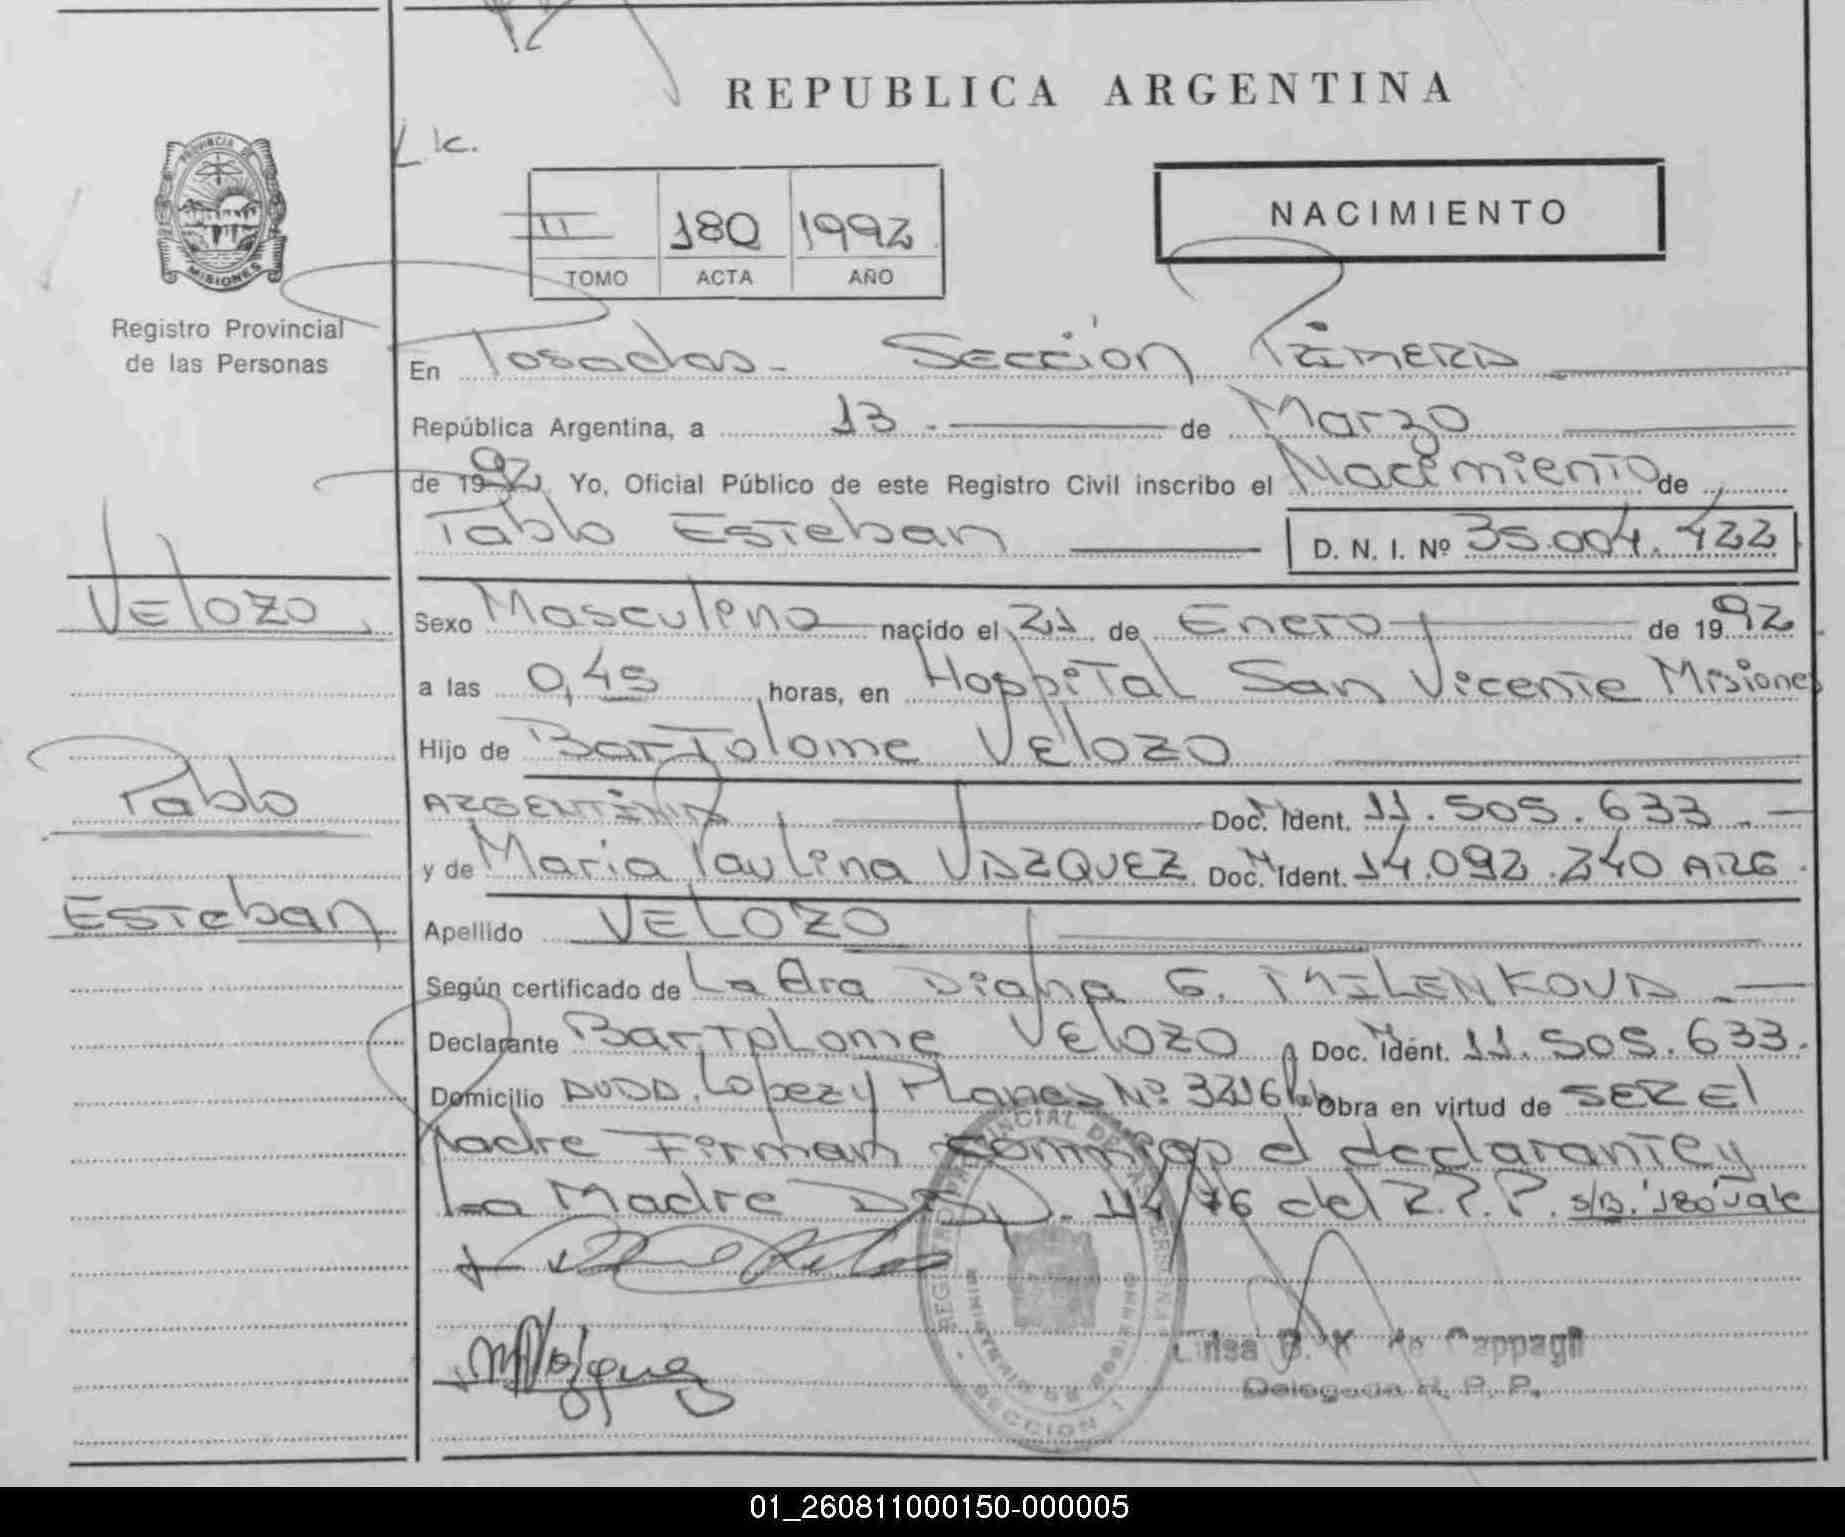 REPUBLICA ARGENTINA
L.K.
PROVINCIA DE
MISIONES
Registro Provincial
de las Personas
II 180 1992
TOMO ACTA AÑO
NACIMIENTO
En Posadas - Sección Primera
República Argentina, a 13 de Marzo
de 1992. Yo, Oficial Público de este Registro Civil inscribo el Nacimiento de
Pablo Esteban D. N. I. Nº 35.004.422
VELOZO
Sexo Masculino nacido el 21 de Enero de 1992
a las 0,45 horas, en Hospital San Vicente Misiones
Hijo de Bartolome VELOZO
Pablo
ARGENTINA Doc. N Ident. 11.505.633
y de María Paulina VAZQUEZ Doc. N Ident. 14.092.240 ARG.
Esteban
Apellido VELOZO
Según certificado de La Dra Diana G. MILENKOVA
Declarante Bartolome VELOZO Doc. N Ident. 11.505.633.
Domicilio AVDA. Lopez y Planes Nº 3216 Obra en virtud de SER El
Padre Firman conmigo el declarante y
La Madre 14/76 del R.P.P. s/b. 180 vale
REGISTRO PROVINCIAL DE LAS PERSONAS
MINISTERIO DE GOBIERNO
SECCION 1
B. K. de Cappagli
Delegada R. P. P.
01_260811000150-000005